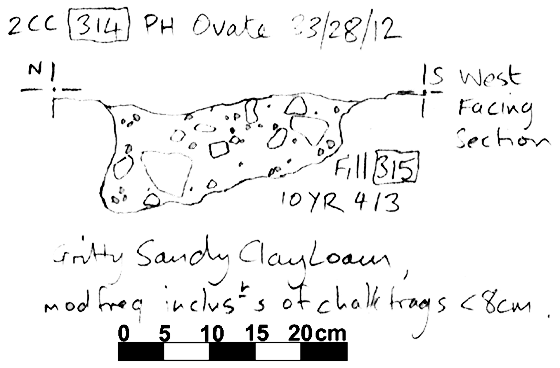 2CC [314] PH Ovate 23/28/12
N S West
Facing
Section
Fill [315]
10 YR 4/3
Gritty Sandy Clay Loam,
modfreq inclusts of chalk frags <8cm.
0 5 10 15 20cm